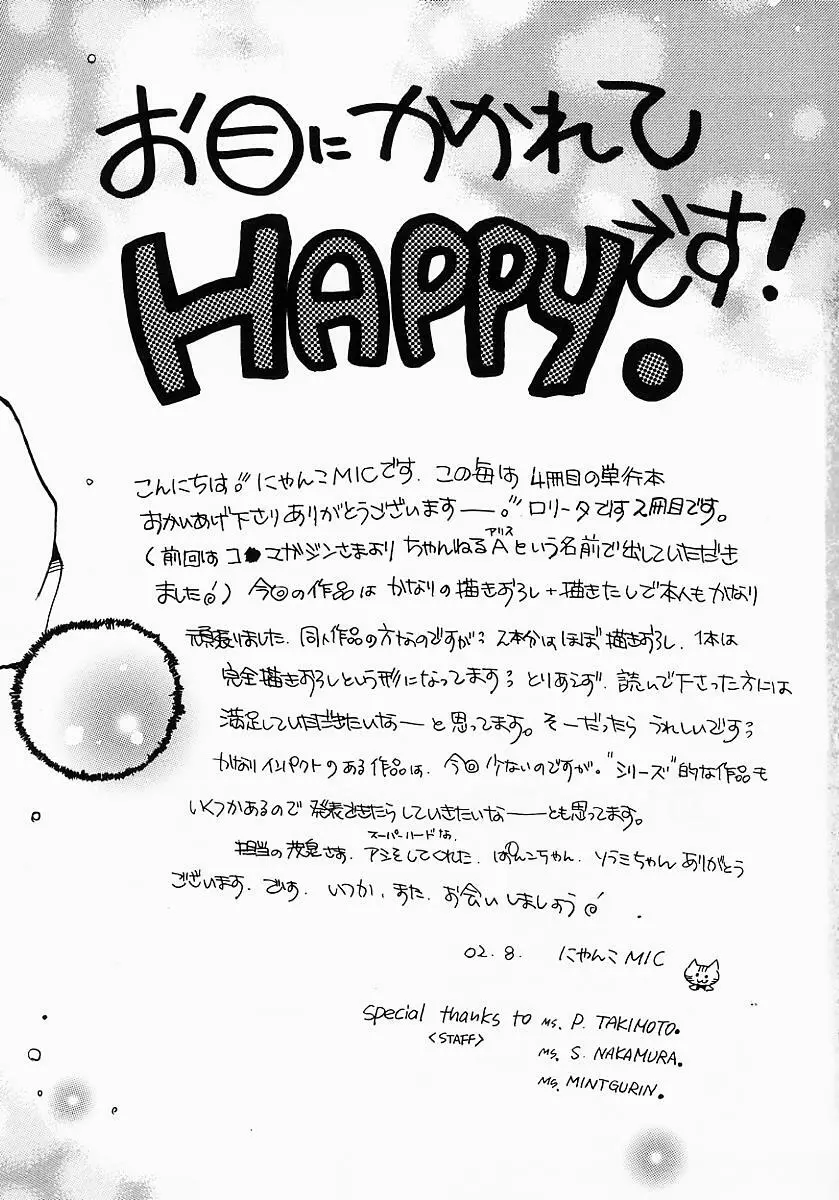 お目にかかれて
HAPPYです!
こんにちは。にゃんこMICです. この毎は 4冊目の単行本
おかいあげ下さりありがとうございますー。ロリータです2冊目です。
(前回はコ●マガジンさまより ちゃんねるAという名前で出していただき
アリス
ました!) 今回の作品は かなりの描きおろし+描きたしで本人もかなり
頑張りました. 同人作品の方なのですが; 2本分はほぼ描きおろし. 1本は
完全描きおろしという形になってます; とりあえず. 読んで下さった方には
満足していただきたいなーと思ってます。そーだったら うれしいです;
かなりインパクトのある作品は. 今回少ないのですが. "シリーズ"的な作品も
いくつかあるので 発表できたらしていきたいなーとも思ってます。
スーパーハードな.
担当の さま. アシをしてくれた. ぱんこちゃん. ソラミちゃん ありがとう
ございます. です. いつか. また. お会いしましょう!
02. 8. にゃんこMIC
Special thanks to Ms. P. TAKIMOTO.
<STAFF>
Ms. S. NAKAMURA.
Ms. MINTGURIN.